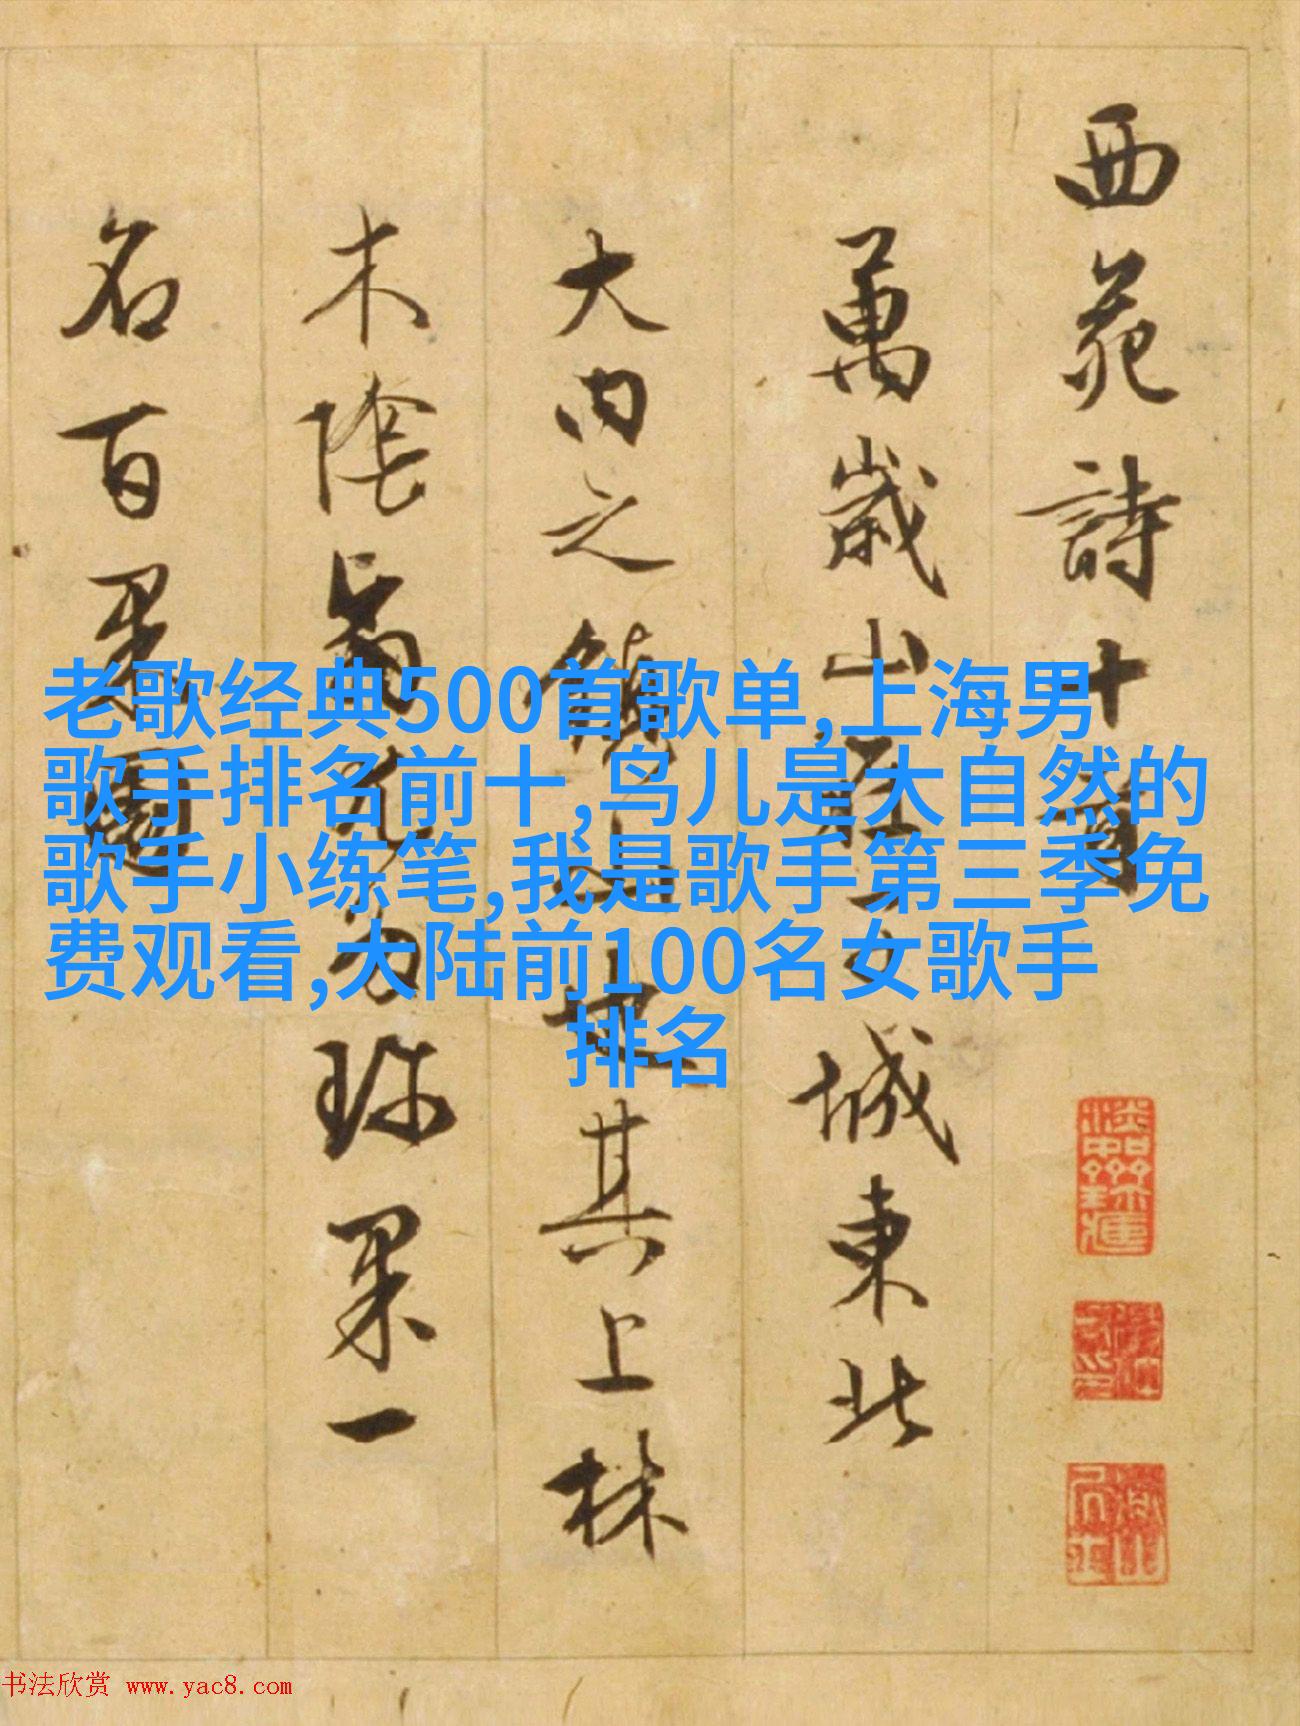 西苑詩十首
萬歲山在子城東北
大內之鎮山也其上林
木陰翳尤多珍果一
名百果園
老歌经典500首歌单,上海男
歌手排名前十,鸟儿是大自然的
歌手小练笔,我是歌手第三季免
费观看,大陆前100名女歌手
排名
书法欣赏 www.yac8.com